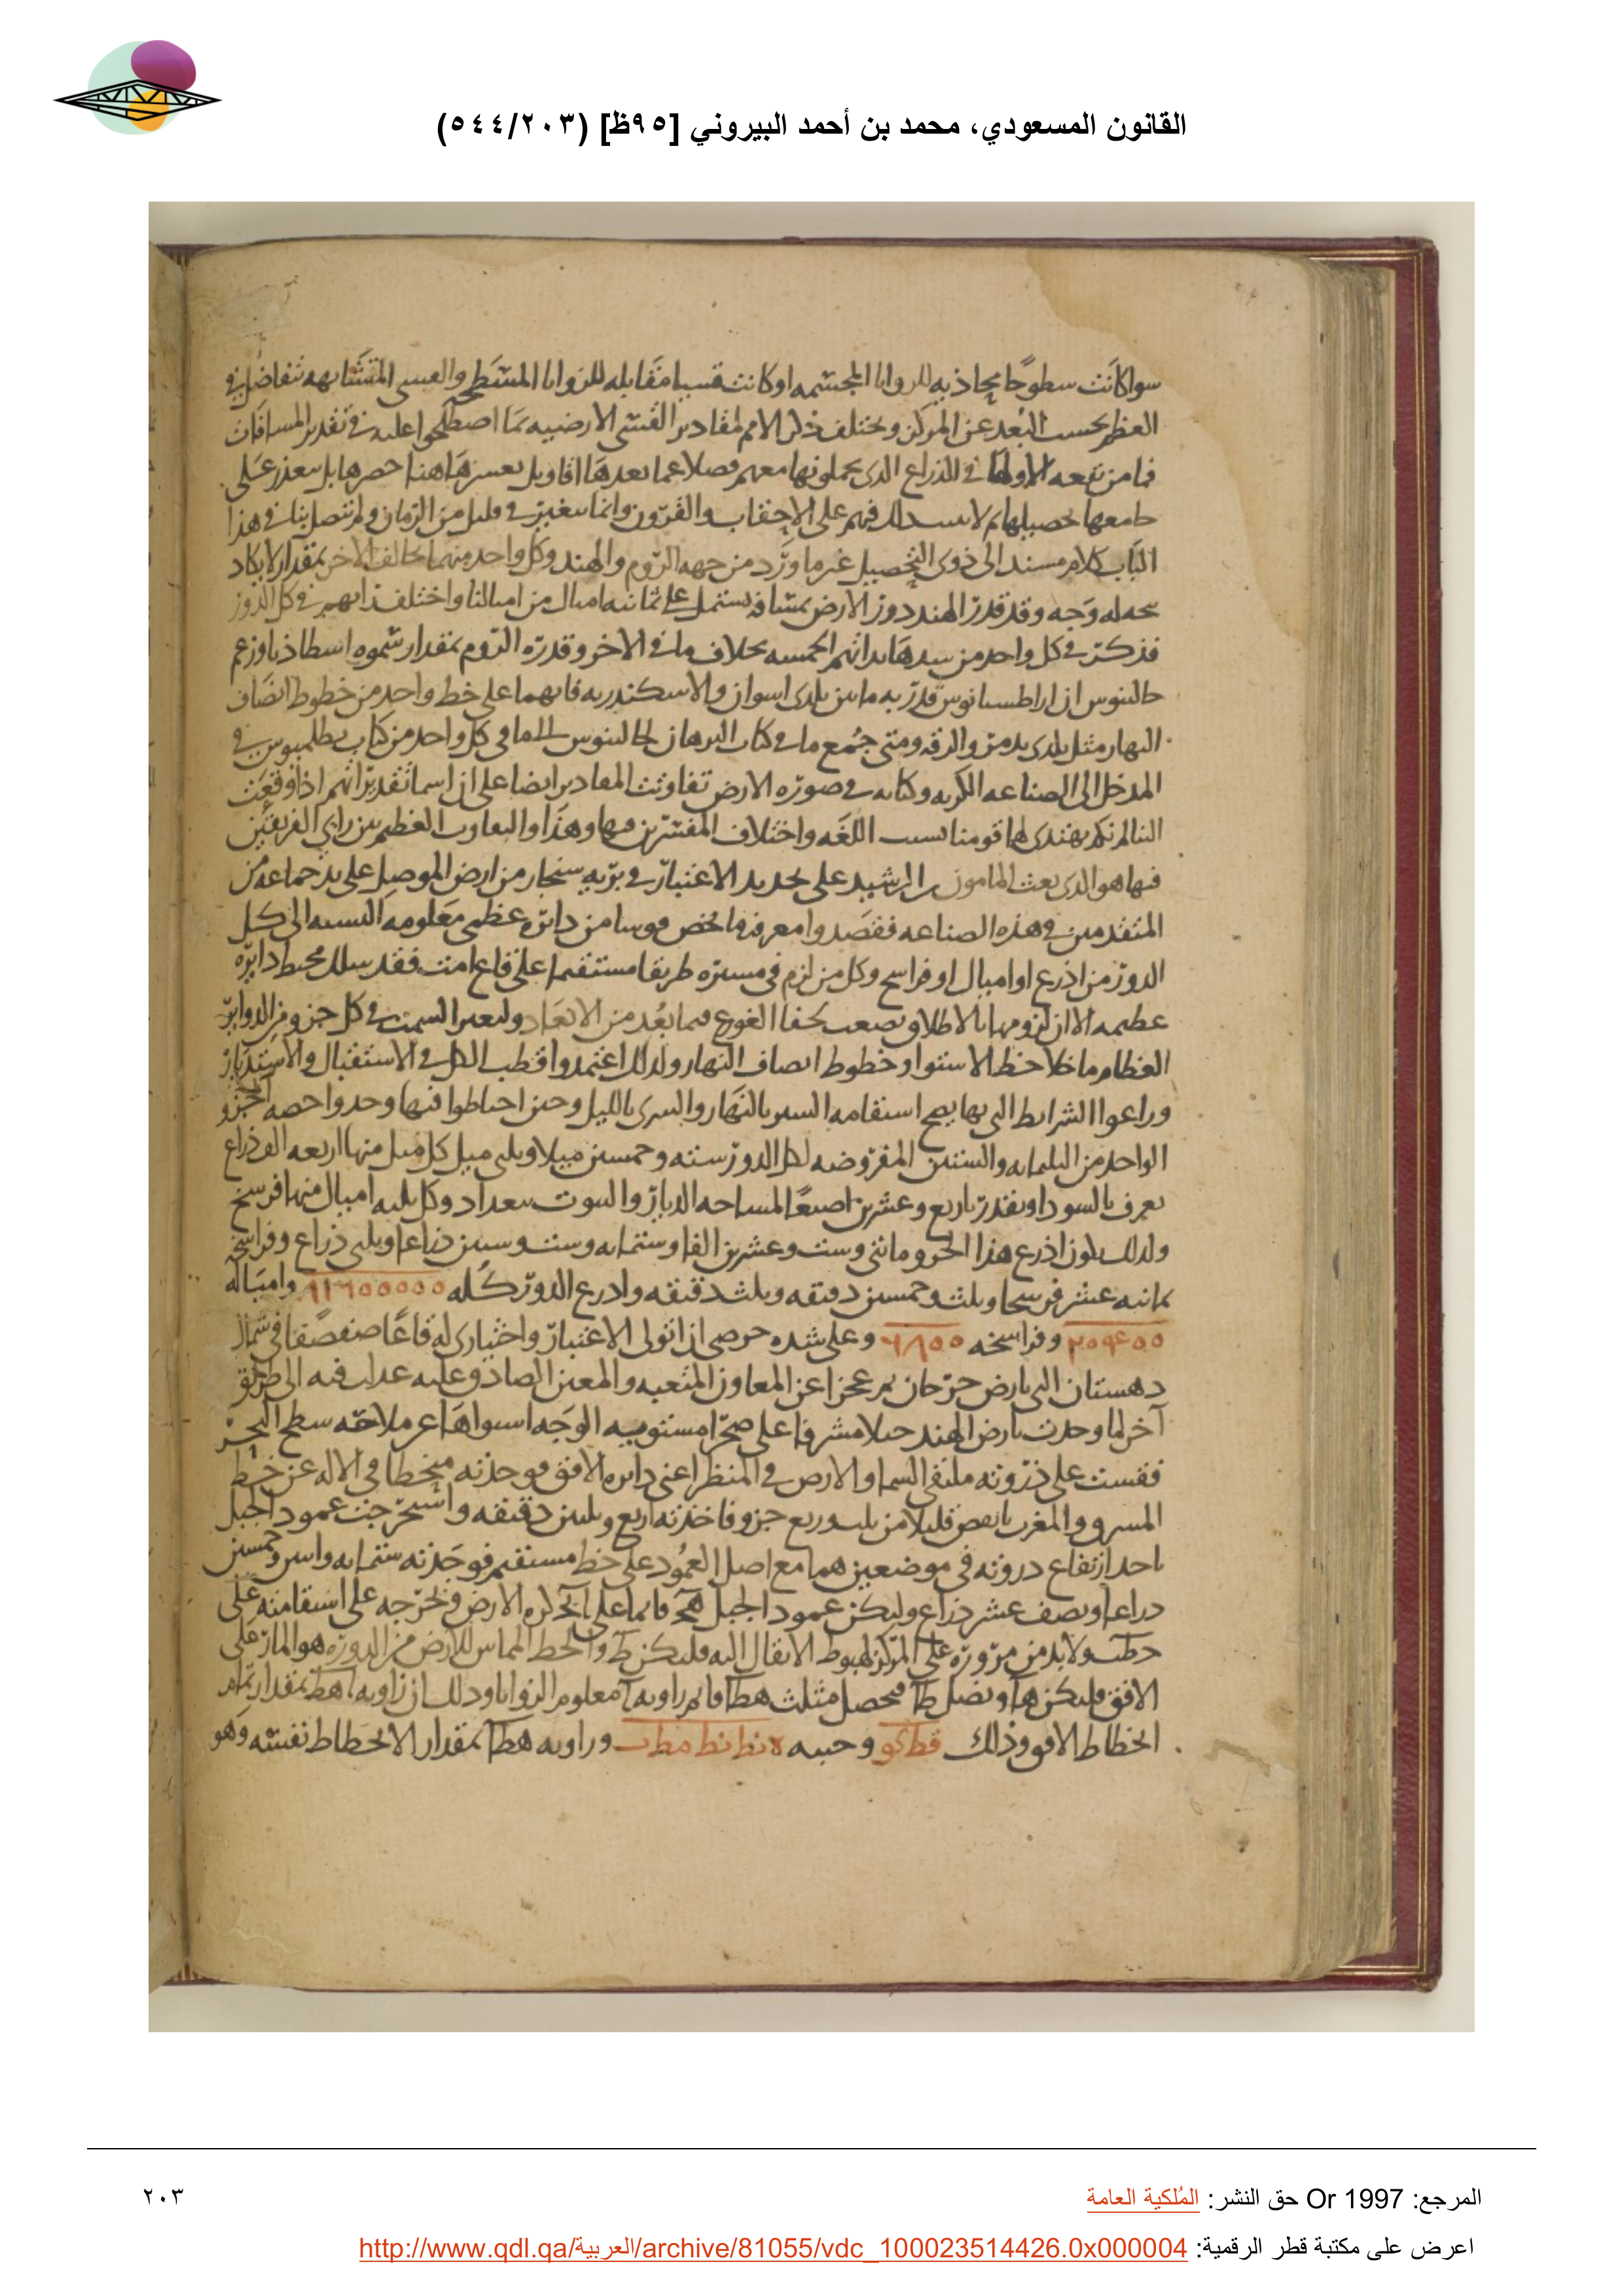 القانون المسعودي، محمد بن أحمد البيروني [٩٥ظ] (٥٤٤/٢٠٣)
سوا كانت سطوحا محاذيه للزوايا المجسمه او كانت قسيا مقابله للزوايا المسطح والقسى المتشابهه تتفاضل في
العظم بحسب البعد عن المركز ويختلف ذكر الامم لمقادير القسى الارضيه بما اصطلحوا عليه في تقدير المسافات
فما من بقعه الا ولها في الذراع الذى يعملونها معهم فضلا عما بعدها اقاويل يعسر هاهنا حصرها بل يتعذر على
جامعها تحصيلها ثم لا فيهم على الاحقاب والقرون وانما يتغير في قليل من الزمان ولم تتصل بنا في هذا
الباب كلام مسند الى ذوى التحصيل غير ما ورد من جهه الروم والهند وكل واحد منهما يخالف الاخر بمقدار لا يكاد
وجه وقد قدر الهند دور الارض بمسافه يشتمل على ثمانيه اميال من اميالنا واختلف في كل الدور
فذكر في كل واحد من الخمسه بخلاف ما في الاخر وقدره الروم بمقدار سموه اسطاذيا وزعم
جالينوس ان اراطسانوس قدر به ما بين بلدى اسوان والاسكندريه فانهما على خط واحد من خطوط انصاف
النهار مثل بلدى تدمر والرقه ومتى جمع ما في كتاب البرهان لجالينوس الى ما في كل واحد من كتاب بطلميوس في
المدخل الى الصناعه الكريه وكتابه في صوره الارض تفاوتت المقادير ايضا على ان اسما تقديراتهم اذا وقعت
الينا لم نكد نهتدى لها قومنا بسبب اللغه واختلاف المفسرين فيها وهذا والتفاوت العظيم بين رايي الفريقين
فيها هو الذى بعث المامون بن الرشيد على تجديد الاعتبار في بريه سنجار من ارض الموصل على يد جماعه من
المتقدمين في هذه الصناعه فقصدوا معرفه ما يخص قوسا من دائره عظمى معلومه النسبه الى كل
الدور من اذرع او اميال او فراسخ وكل من لزم في مسيره طريقا مستقيما على قاع امت فقد سلك محيط دايره
عظيمه الا ان لزومها بالاطلاق يصعب فيما بعد من الابعاد ولتغير السمت في كل جزو من الدواير
العظام ما خلا خط الاستوا وخطوط انصاف النهار ولذلك اعتمدوا قطب الكل في الاستقبال والاستدبار
وراعوا الشرايط التي بها يصح استقامه السير بالنهار والسرى بالليل وحين احتاطوا فيها وجدوا حصه الجزو
الواحد من الثلثمايه والستين المفروضه لكل الدور سته وخمسين ميلا وثلثى ميل كل ميل منها اربعه الف ذراع
يعرف بالسودا ويقدر باربع وعشرين اصبعا لمساحه الديار والبيوت ببغداد وكل ثلثه اميال منها فرسخ
ولذلك يكون اذرع هذا الجزو مائتى وست وعشرين الفا وستمايه وست وستين ذراعا وثلثى ذراع وفراسخه
ثمانيه عشر فرسخا وثلث وخمسين دقيقه وثلث دقيقه واذرع الدور كله ٨١٦٠٠٠٠٠ وامياله
٢٠٤٠٠ وفراسخه ٦٨٠٠ وعلى شده حرصى ان اتولى الاعتبار واختيارى له قاعا صفصفا في شمال
دهستان التى بارض جرجان ثم عجزا عن المفاوز المتعبه والمعين الصادق عليه عدلت فيه الى طريق
آخر لما وجدت بارض الهند جبلا مشرفا على صحرا مستويه الوجه ملاحه سطح البحر
فقست على ذروته ملتقى السما والارض في المنظر اعنى دايره الافق فوجدته منحطا في الاله عن خط
المشرق والمغرب بانقص قليلا من ثلث وربع جزو فاخذته اربع وثلثين دقيقه واستخرجت عمود الجبل
باخذ ارتفاع ذروته في موضعين هما مع اصل العمود على خط مستقيم فوجدته ستمايه واثنين وخمسين
ذراعا ونصف عشر ذراع وليكن عمود الجبل هج قايما على كره الارض ونخرجه على استقامته على
ولا بد من مروره على المركز لهبوط الاثقال اليه فليكن ط والخط المماس للارض من الذروه هو المار على
الافق وليكن هآ ونصل طآ فيحصل مثلث هطآ قايم زاويه آ معلوم الزوايا وذلك ان زاويه اهط بمقدار تمام
انحطاط الافق وذلك فط كو وجيبه ٥ نط نط مط ب وزاويه هطآ بمقدار الانحطاط نفسه وهو
المرجع: Or 1997 حق النشر: المُلكية العامة
٢٠٣
اعرض على مكتبة قطر الرقمية: http://www.qdl.qa/العربية/archive/81055/vdc_100023514426.0x000004